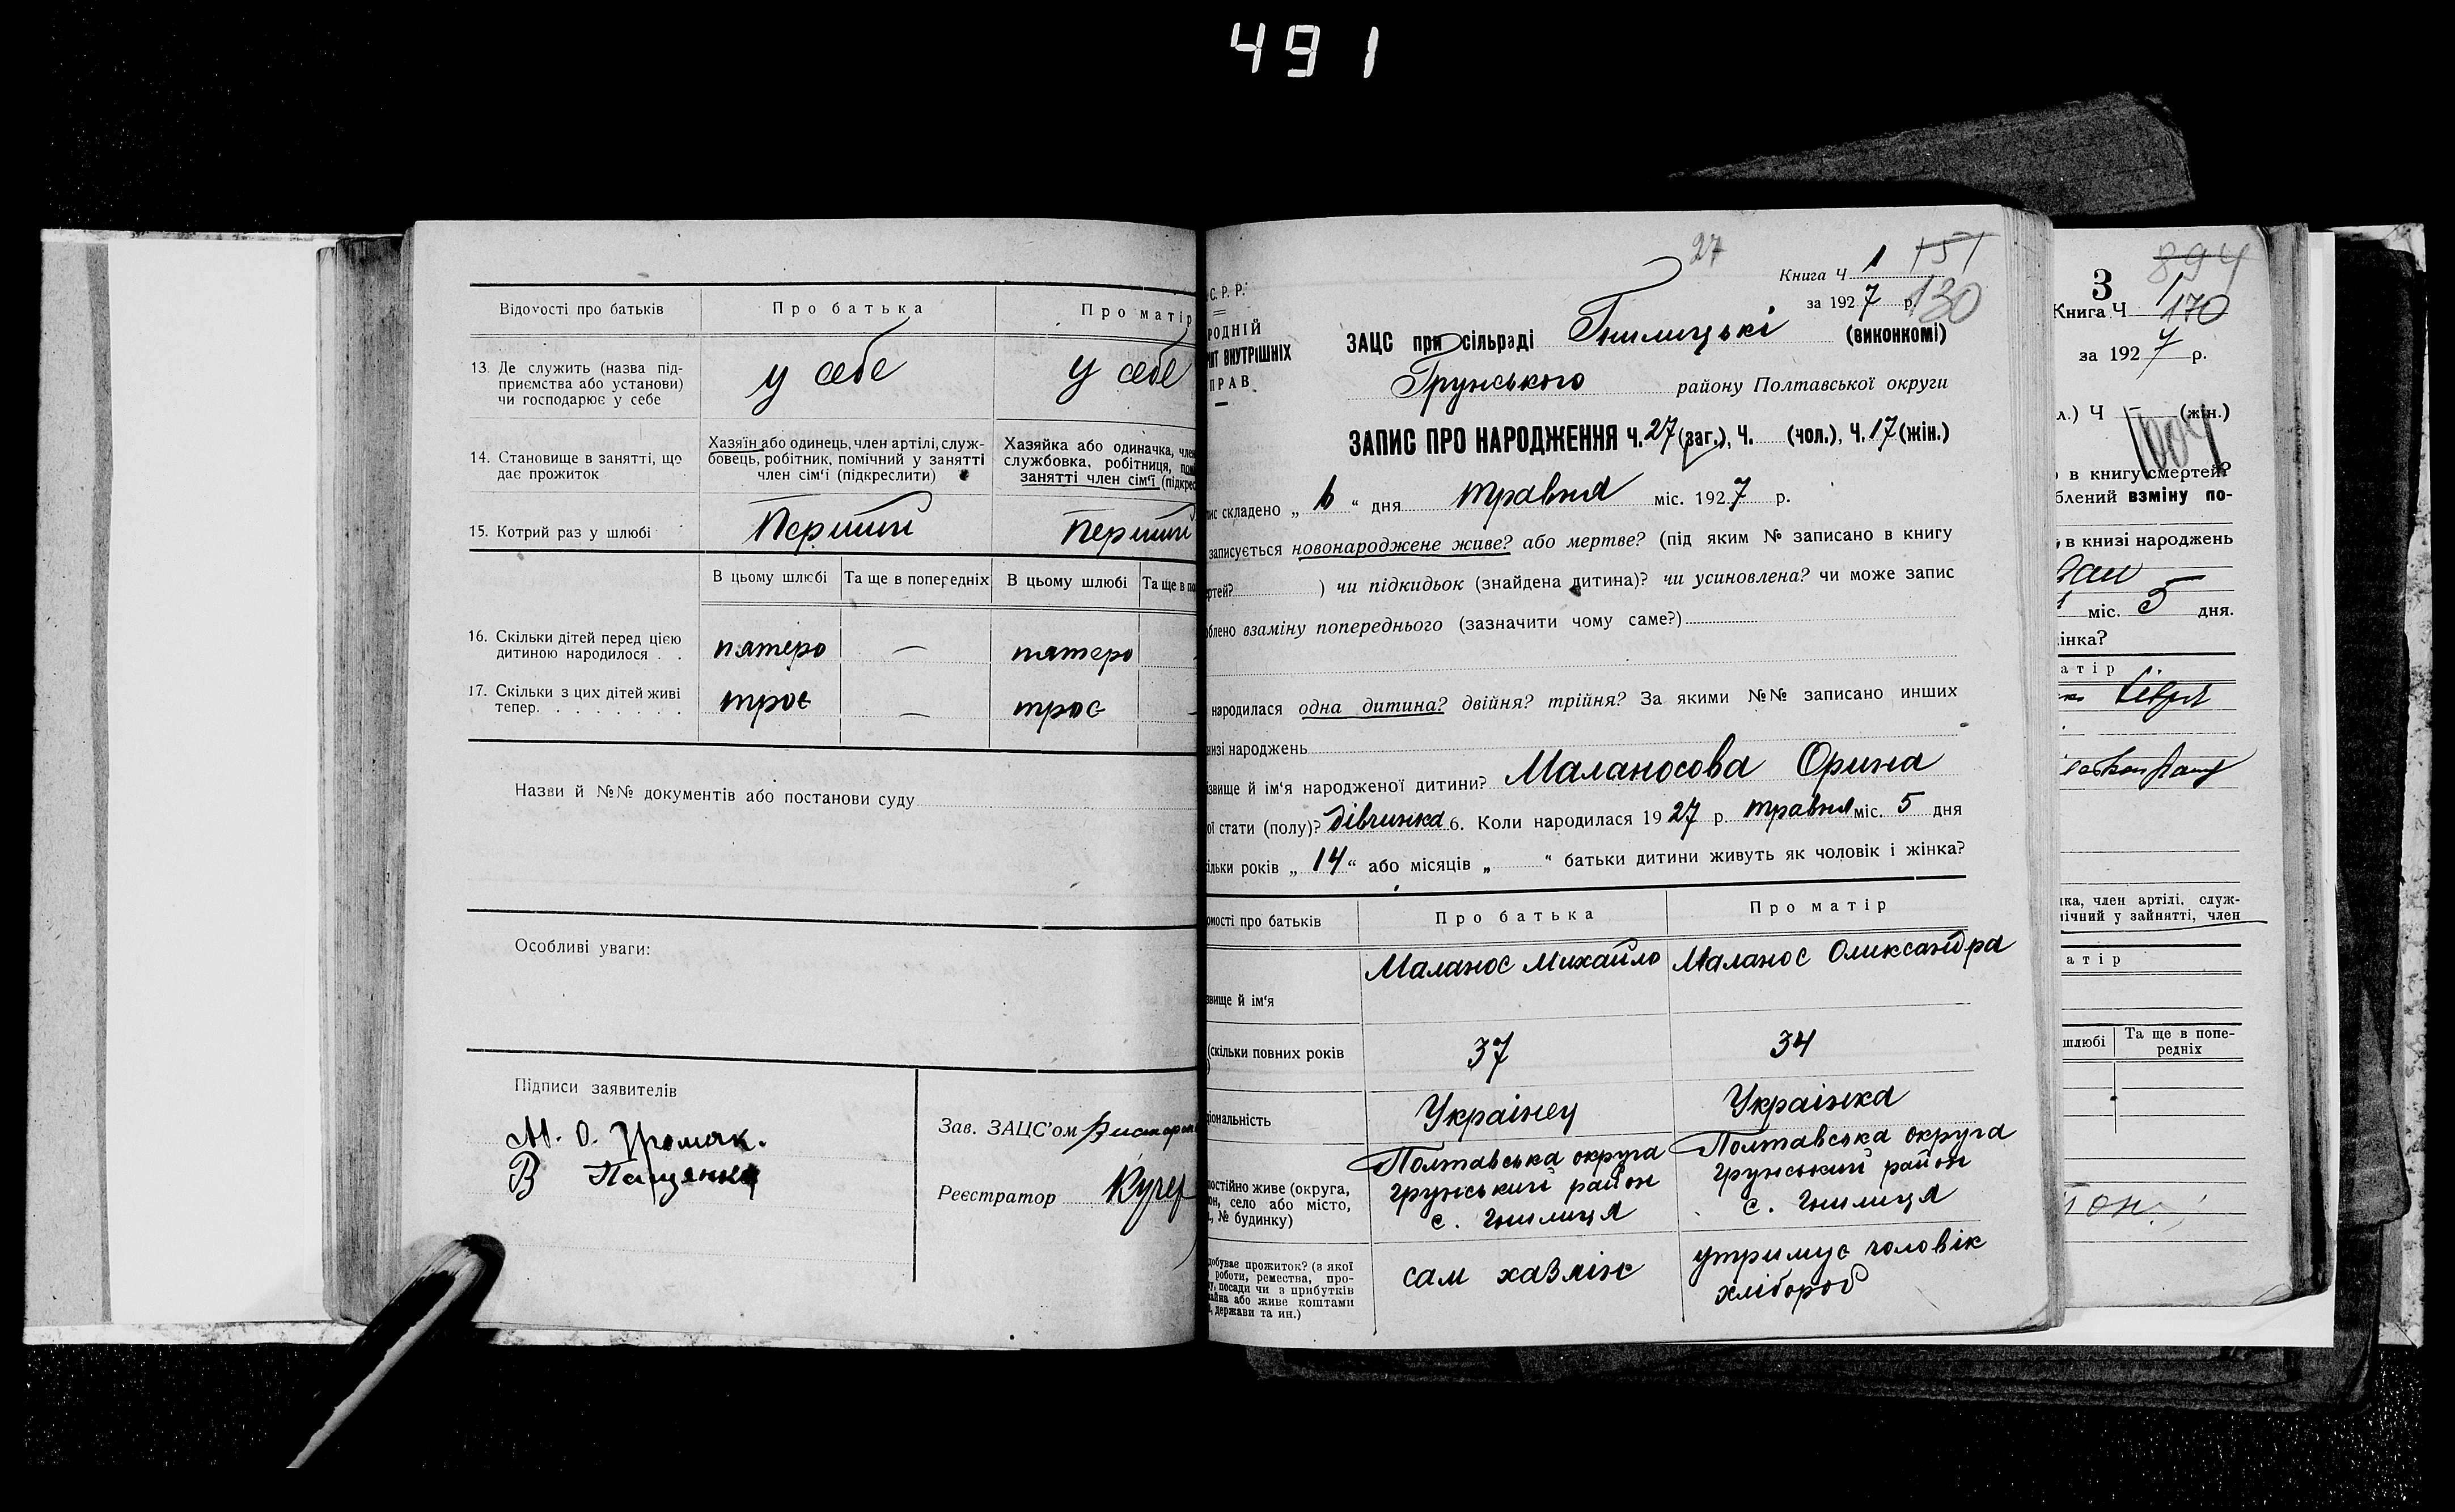 491
Відомості про батьків
Про батька
Про матір
13. Де служить (назва під-
приємства або установи)
чи господарює у себе
у себе
у себе
14. Становище в занятті, що
дає прожиток
Хазяїн або одинець, член артілі, служ-
бовець, робітник, помічний у занятті
член сім'ї (підкреслити)
Хазяйка або одиначка, член
службовка, робітниця,
занятті член сім'ї
15. Котрий раз у шлюбі
Перший
Перший
В цьому шлюбі
Та ще в попередніх
В цьому шлюбі
Та ще в
16. Скільки дітей перед цією
дитиною народилося . .
пятеро
—
пятеро
17. Скільки з цих дітей живі
тепер. . . . . . . .
троє
—
троє
Назви й №№ документів або постанови суду
Особливі уваги:
Підписи заявителів
М. О.
В Пащенко
Зав. ЗАЦС'ом
Реєстратор Кучер
27
Книга Ч 1 151
за 1927 р. 130
С. Р. Р.
РОДНІЙ
ВНУТРІШНІХ
ПРАВ
ЗАЦС при сільраді Гнилицькі (виконкомі)
Грунського району Полтавської округи
ЗАПИС ПРО НАРОДЖЕННЯ Ч. 27 (заг.), Ч. (чол.), Ч. 17 (жін.)
складено „ 6 “ дня травня міс. 1927 р.
записується новонароджене живе? або мертве? (під яким № записано в книгу
) чи підкидьок (знайдена дитина)? чи усиновлена? чи може запис
взаміну попереднього (зазначити чому саме?)
народилася одна дитина? двійня? трійня? За якими №№ записано инших
народжень
й ім'я народженої дитини? Маланосова Орина
стати (полу)? дівчинка 6. Коли народилася 1927 р. травня міс. 5 дня
років „ 14 “ або місяців „ “ батьки дитини живуть як чоловік і жінка?
про батьків
Про батька
Про матір
й ім'я
Маланос Михайло
Маланос Олиександра
(скільки повних років
37
34
Українец
Українка
постійно живе (округа,
село або місто,
№ будинку)
Полтавська округа
грунський район
с. гнилиця
Полтавська округа
грунський район
с. гнилиця
прожиток? (з якої
роботи, ремества, про-
посади чи з прибутків
або живе коштами
держави та ин.)
сам хазяін
утримує чоловік
хлібороб
3
894
Книга Ч 1
170
за 1927 р.
Ч (жін.)
1004
в книгу смертей?
взміну по-
в книзі народжень
міс. 5 дня.
жінка?
шлюбі
Та ще в попе-
редніх
член артілі, служ-
у зайнятті, член